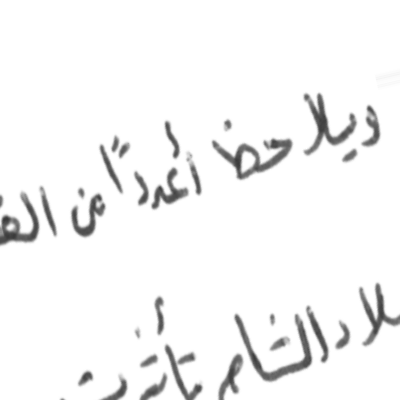 ويلاحظ أعددًا من الف
بلاد الشام تأثرت